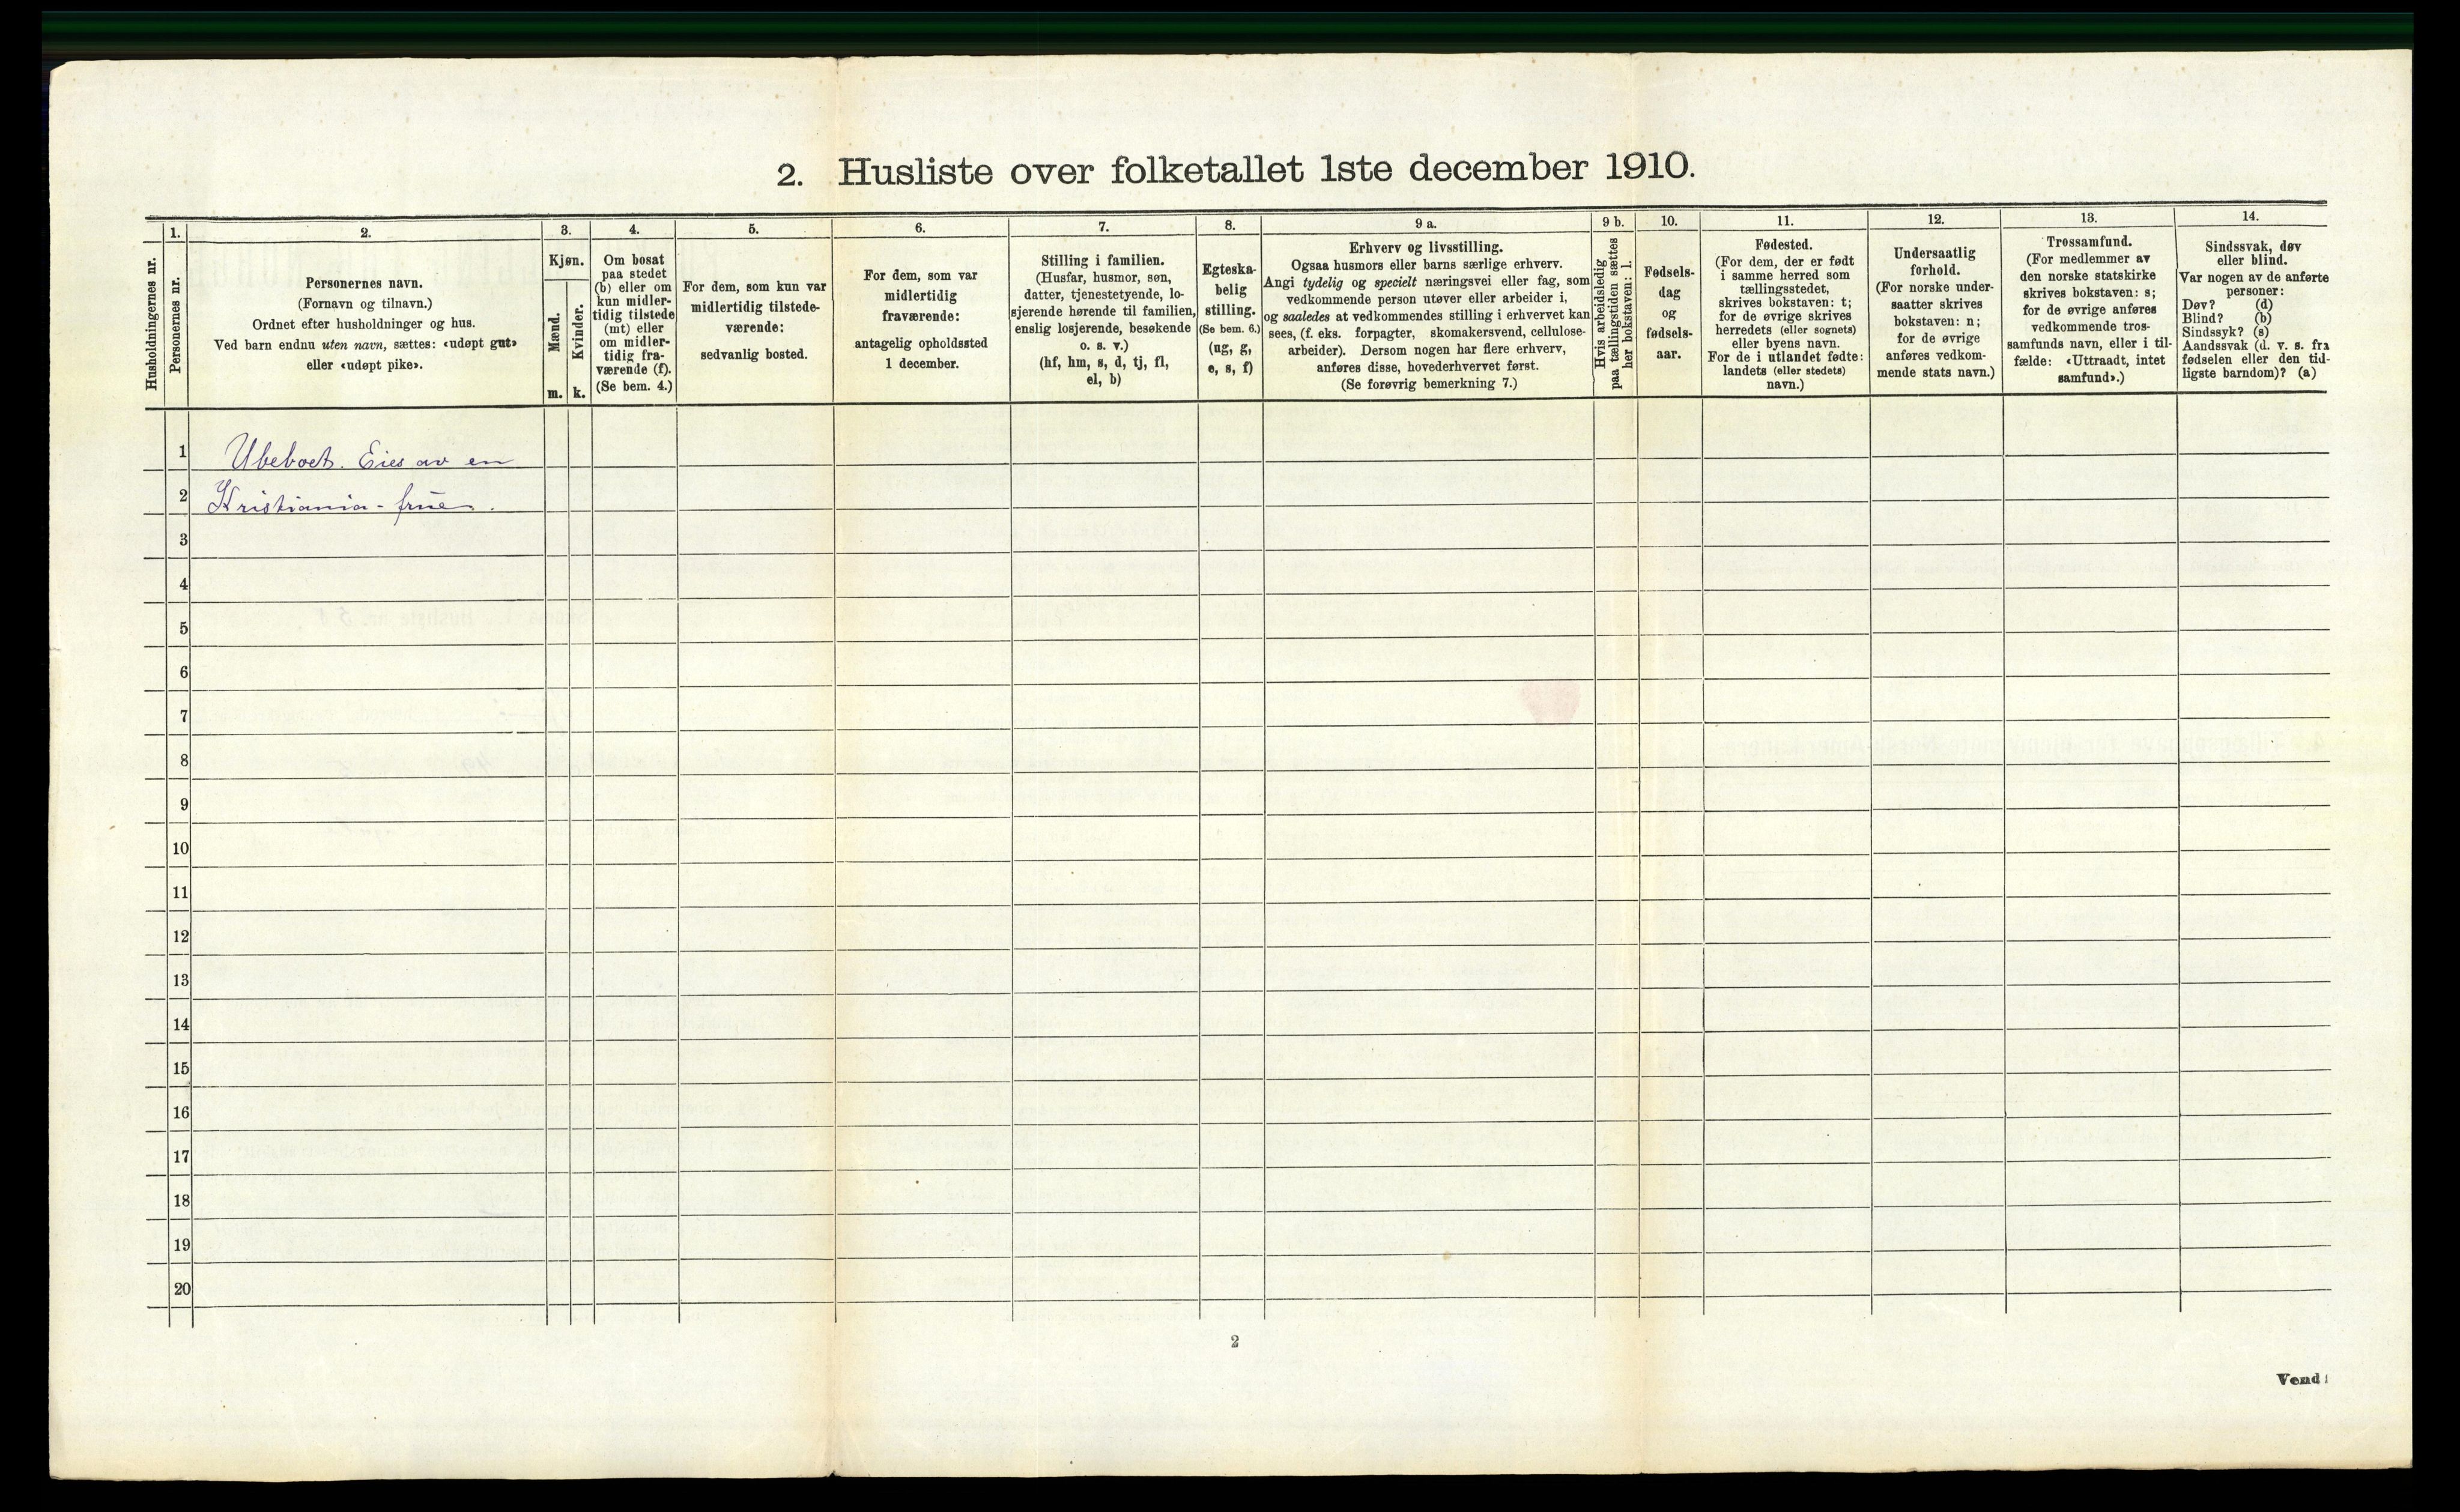 2. Husliste over folketallet 1ste december 1910.
Husholdningernes nr.
1.
Personernes nr.
2.
Personernes navn.
(Fornavn og tilnavn.)
Ordnet efter husholdninger og hus.
Ved barn endnu uten navn, sættes: «udøpt gut»
eller «udøpt pike».
3.
Kjøn.
Mænd.
Kvinder.
m.
k.
4.
Om bosat
paa stedet
(b) eller om
kun midler-
tidig tilstede
(mt) eller
om midler-
tidig fra-
værende (f).
(Se bem. 4.)
5.
For dem, som kun var
midlertidig tilstede-
værende:
sedvanlig bosted.
6.
For dem, som var
midlertidig
fraværende:
antagelig opholdssted
1 december.
7.
Stilling i familien.
(Husfar, husmor, søn,
datter, tjenestetyende, lo-
sjerende hørende til familien,
enslig losjerende, besøkende
o. s. v.)
(hf, hm, s, d, tj, fl,
el, b)
8.
Egteska-
belig
stilling.
(Se bem. 6.)
(ug, g,
e, s, f)
9 a.
Erhverv og livsstilling.
Ogsaa husmors eller barns særlige erhverv.
Angi tydelig og specielt næringsvei eller fag, som
vedkommende person utøver eller arbeider i,
og saaledes at vedkommendes stilling i erhvervet kan
sees, (f. eks. forpagter, skomakersvend, cellulose-
arbeider). Dersom nogen har flere erhverv,
anføres disse, hovederhvervet først.
(Se forøvrig bemerkning 7.)
9 b.
Hvis arbeidsledig
paa tællingstiden sættes
her bokstaven: l.
10.
Fødsels-
dag
og
fødsels-
aar.
11.
Fødested.
(For dem, der er født
i samme herred som
tællingsstedet,
skrives bokstaven: t;
for de øvrige skrives
herredets (eller sognets)
eller byens navn.
For de i utlandet fødte:
landets (eller stedets)
navn.)
12.
Undersaatlig
forhold.
(For norske under-
saatter skrives
bokstaven: n;
for de øvrige
anføres vedkom-
mende stats navn.)
13.
Trossamfund.
(For medlemmer av
den norske statskirke
skrives bokstaven: s;
for de øvrige anføres
vedkommende tros-
samfunds navn, eller i til-
fælde: «Uttraadt, intet
samfund».)
14.
Sindssvak, døv
eller blind.
Var nogen av de anførte
personer:
Døv? (d)
Blind? (b)
Sindssyk? (s)
Aandssvak (d. v. s. fra
fødselen eller den tid-
ligste barndom)? (a)
1 Ubeboet. Eies av en
2 Kristiania-frue.
3
4
5
6
7
8
9
10
11
12
13
14
15
16
17
18
19
20
2
Vend!